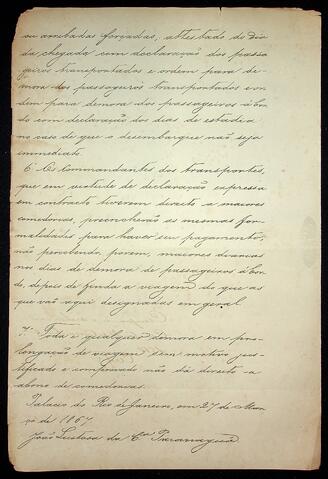 ou arribadas forçadas, attestado do dia
da chegada com declaração dos passa
geiros transportados e ordem para de-
mora dos passageiros transportados e or
dem para demora dos passageiros á bor
do com declaração dos dias de estadia
no caso de que o desembarque não seja
immediato.
6º Os Commandantes dos transportes,
que em virtude de declaração expressa
em contracto tiverem direito a maiores
comedorias, preencherão as mesmas for
malidades para haver seu pagamento,
não percebendo, porem, maiores quantias
nos dias de demora de passageiros á bor
do, depois de finda a viagem do que as
que vão aqui designadas em geral
7º Toda e qualquer demora em pro-
longação de viagem sem motivo jus-
tificado e comprovado não dá direito a
abono de comedorias.
Palacio do Rio de Janeiro, em 27 de Mar
ço de 1867
João Lustosa da Cª Paranaguá